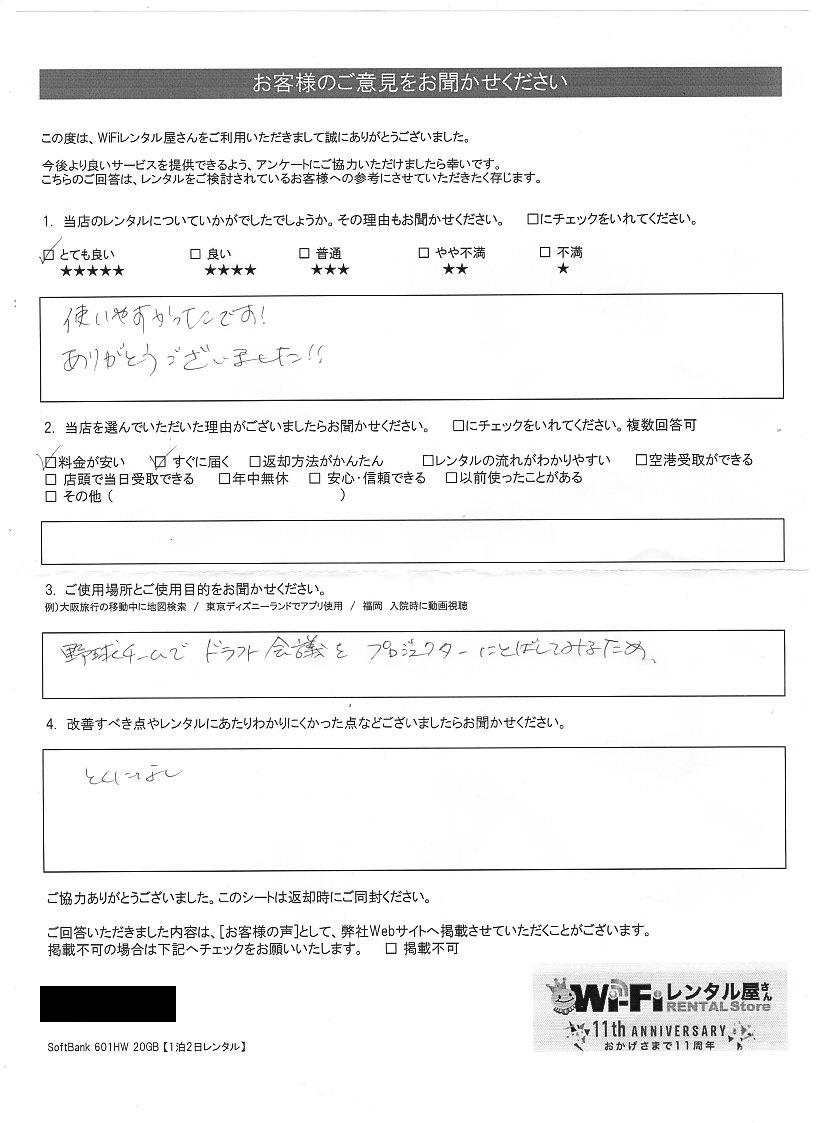 お客様のご意見をお聞かせください
この度は、WiFiレンタル屋さんをご利用いただきまして誠にありがとうございました。
今後より良いサービスを提供できるよう、アンケートにご協力いただけましたら幸いです。
こちらのご回答は、レンタルをご検討されているお客様への参考にさせていただきたく存じます。
1. 当店のレンタルについていかがでしたでしょうか。その理由もお聞かせください。 □にチェックをいれてください。
☑ とても良い □ 良い □ 普通 □ やや不満 □ 不満
★★★★★ ★★★★ ★★★ ★★ ★
使いやすかったです!
ありがとうございました!!
2. 当店を選んでいただいた理由がございましたらお聞かせください。 □にチェックをいれてください。複数回答可
☑料金が安い ☑ すぐに届く □返却方法がかんたん □レンタルの流れがわかりやすい □空港受取ができる
□ 店頭で当日受取できる □年中無休 □ 安心・信頼できる □以前使ったことがある
□ その他 ( )
3. ご使用場所とご使用目的をお聞かせください。
例)大阪旅行の移動中に地図検索 / 東京ディズニーランドでアプリ使用 / 福岡 入院時に動画視聴
野球チームで ドラフト会議を プロジェクターにとばしてみるため、
4. 改善すべき点やレンタルにあたりわかりにくかった点などございましたらお聞かせください。
とくになし
ご協力ありがとうございました。このシートは返却時にご同封ください。
ご回答いただきました内容は、[お客様の声]として、弊社Webサイトへ掲載させていただくことがございます。
掲載不可の場合は下記へチェックをお願いいたします。 □ 掲載不可
Wi-Fiレンタル屋さん
RENTAL Store
11th ANNIVERSARY
おかげさまで11周年
SoftBank 601HW 20GB【1泊2日レンタル】